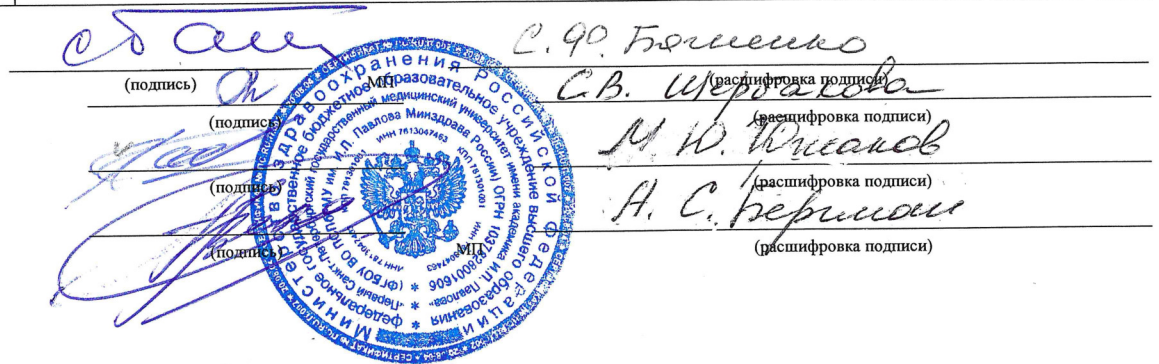 С. Ф. Багненко
(подпись) МП (расшифровка подписи)
С.В. Щербакова
(подпись) (расшифровка подписи)
М. Ю.
(подпись) (расшифровка подписи)
А. С. Бергман
(подпись) МП (расшифровка подписи)
Министерство здравоохранения Российской Федерации
федеральное государственное бюджетное образовательное учреждение высшего образования
"Первый Санкт-Петербургский государственный медицинский университет имени академика И.П. Павлова"
(ФГБОУ ВО ПСПбГМУ им. И.П. Павлова Минздрава России) ОГРН
ИНН 7813047463 КПП 781301001